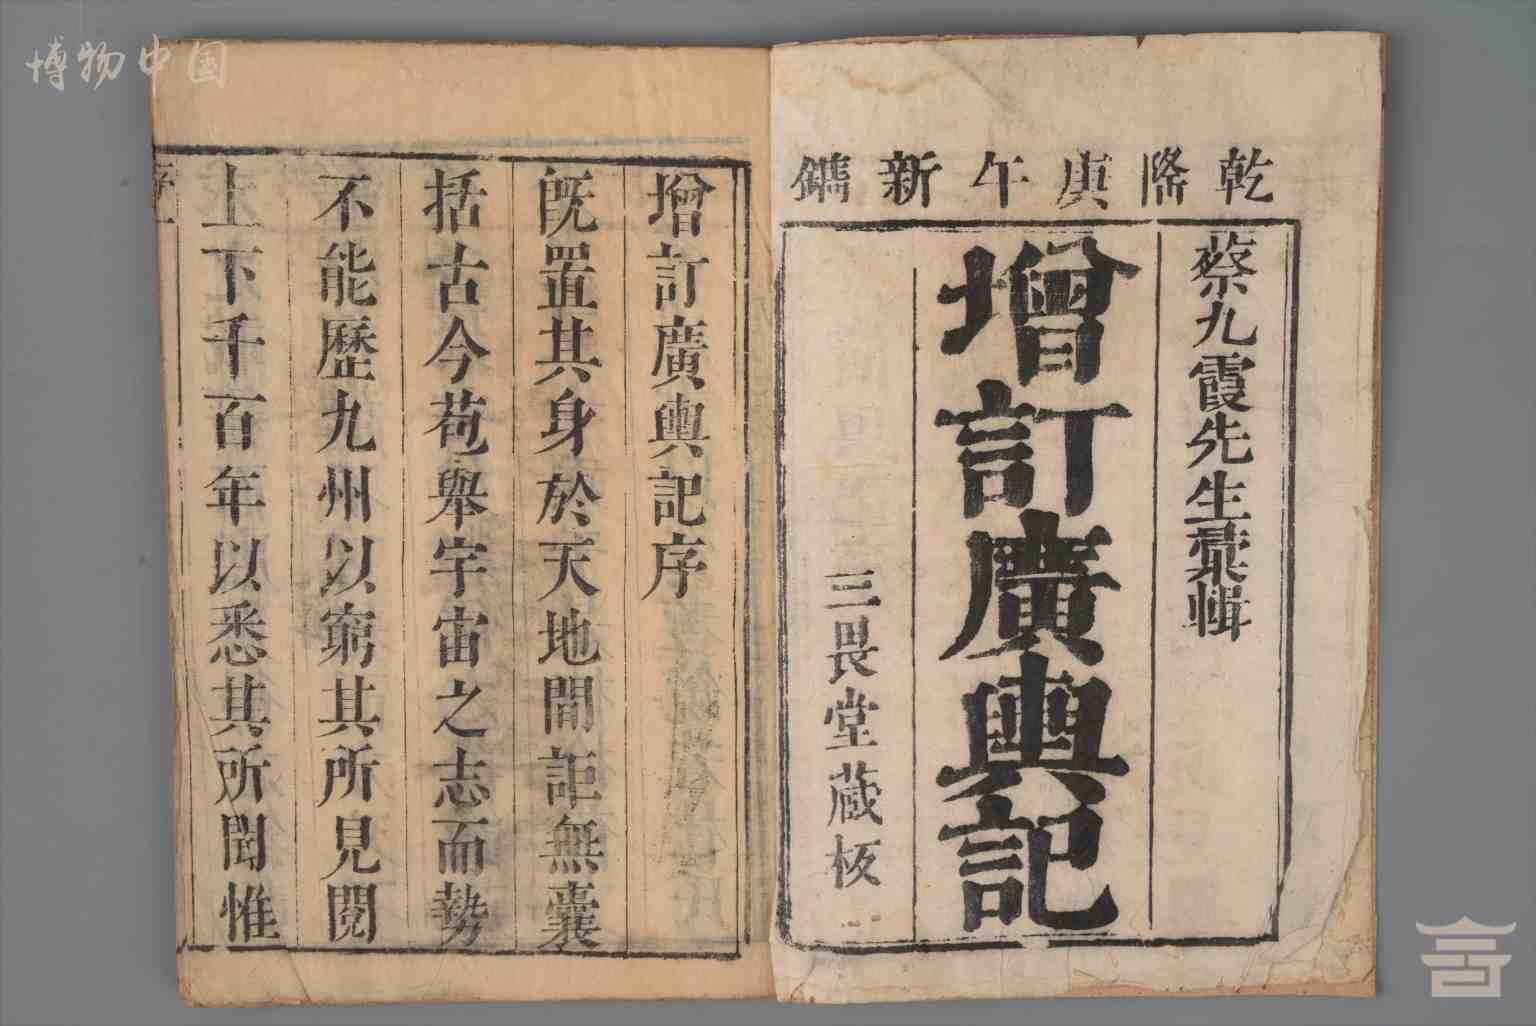 博物中国
乾隆庚午新鐫
蔡九霞先生彙輯
增訂廣輿記
三畏堂藏板
增訂廣輿記序
旣置其身於天地間詎無囊
括古今苞舉宇宙之志而勢
不能歷九州以窮其所見閱
上下千百年以悉其所聞惟